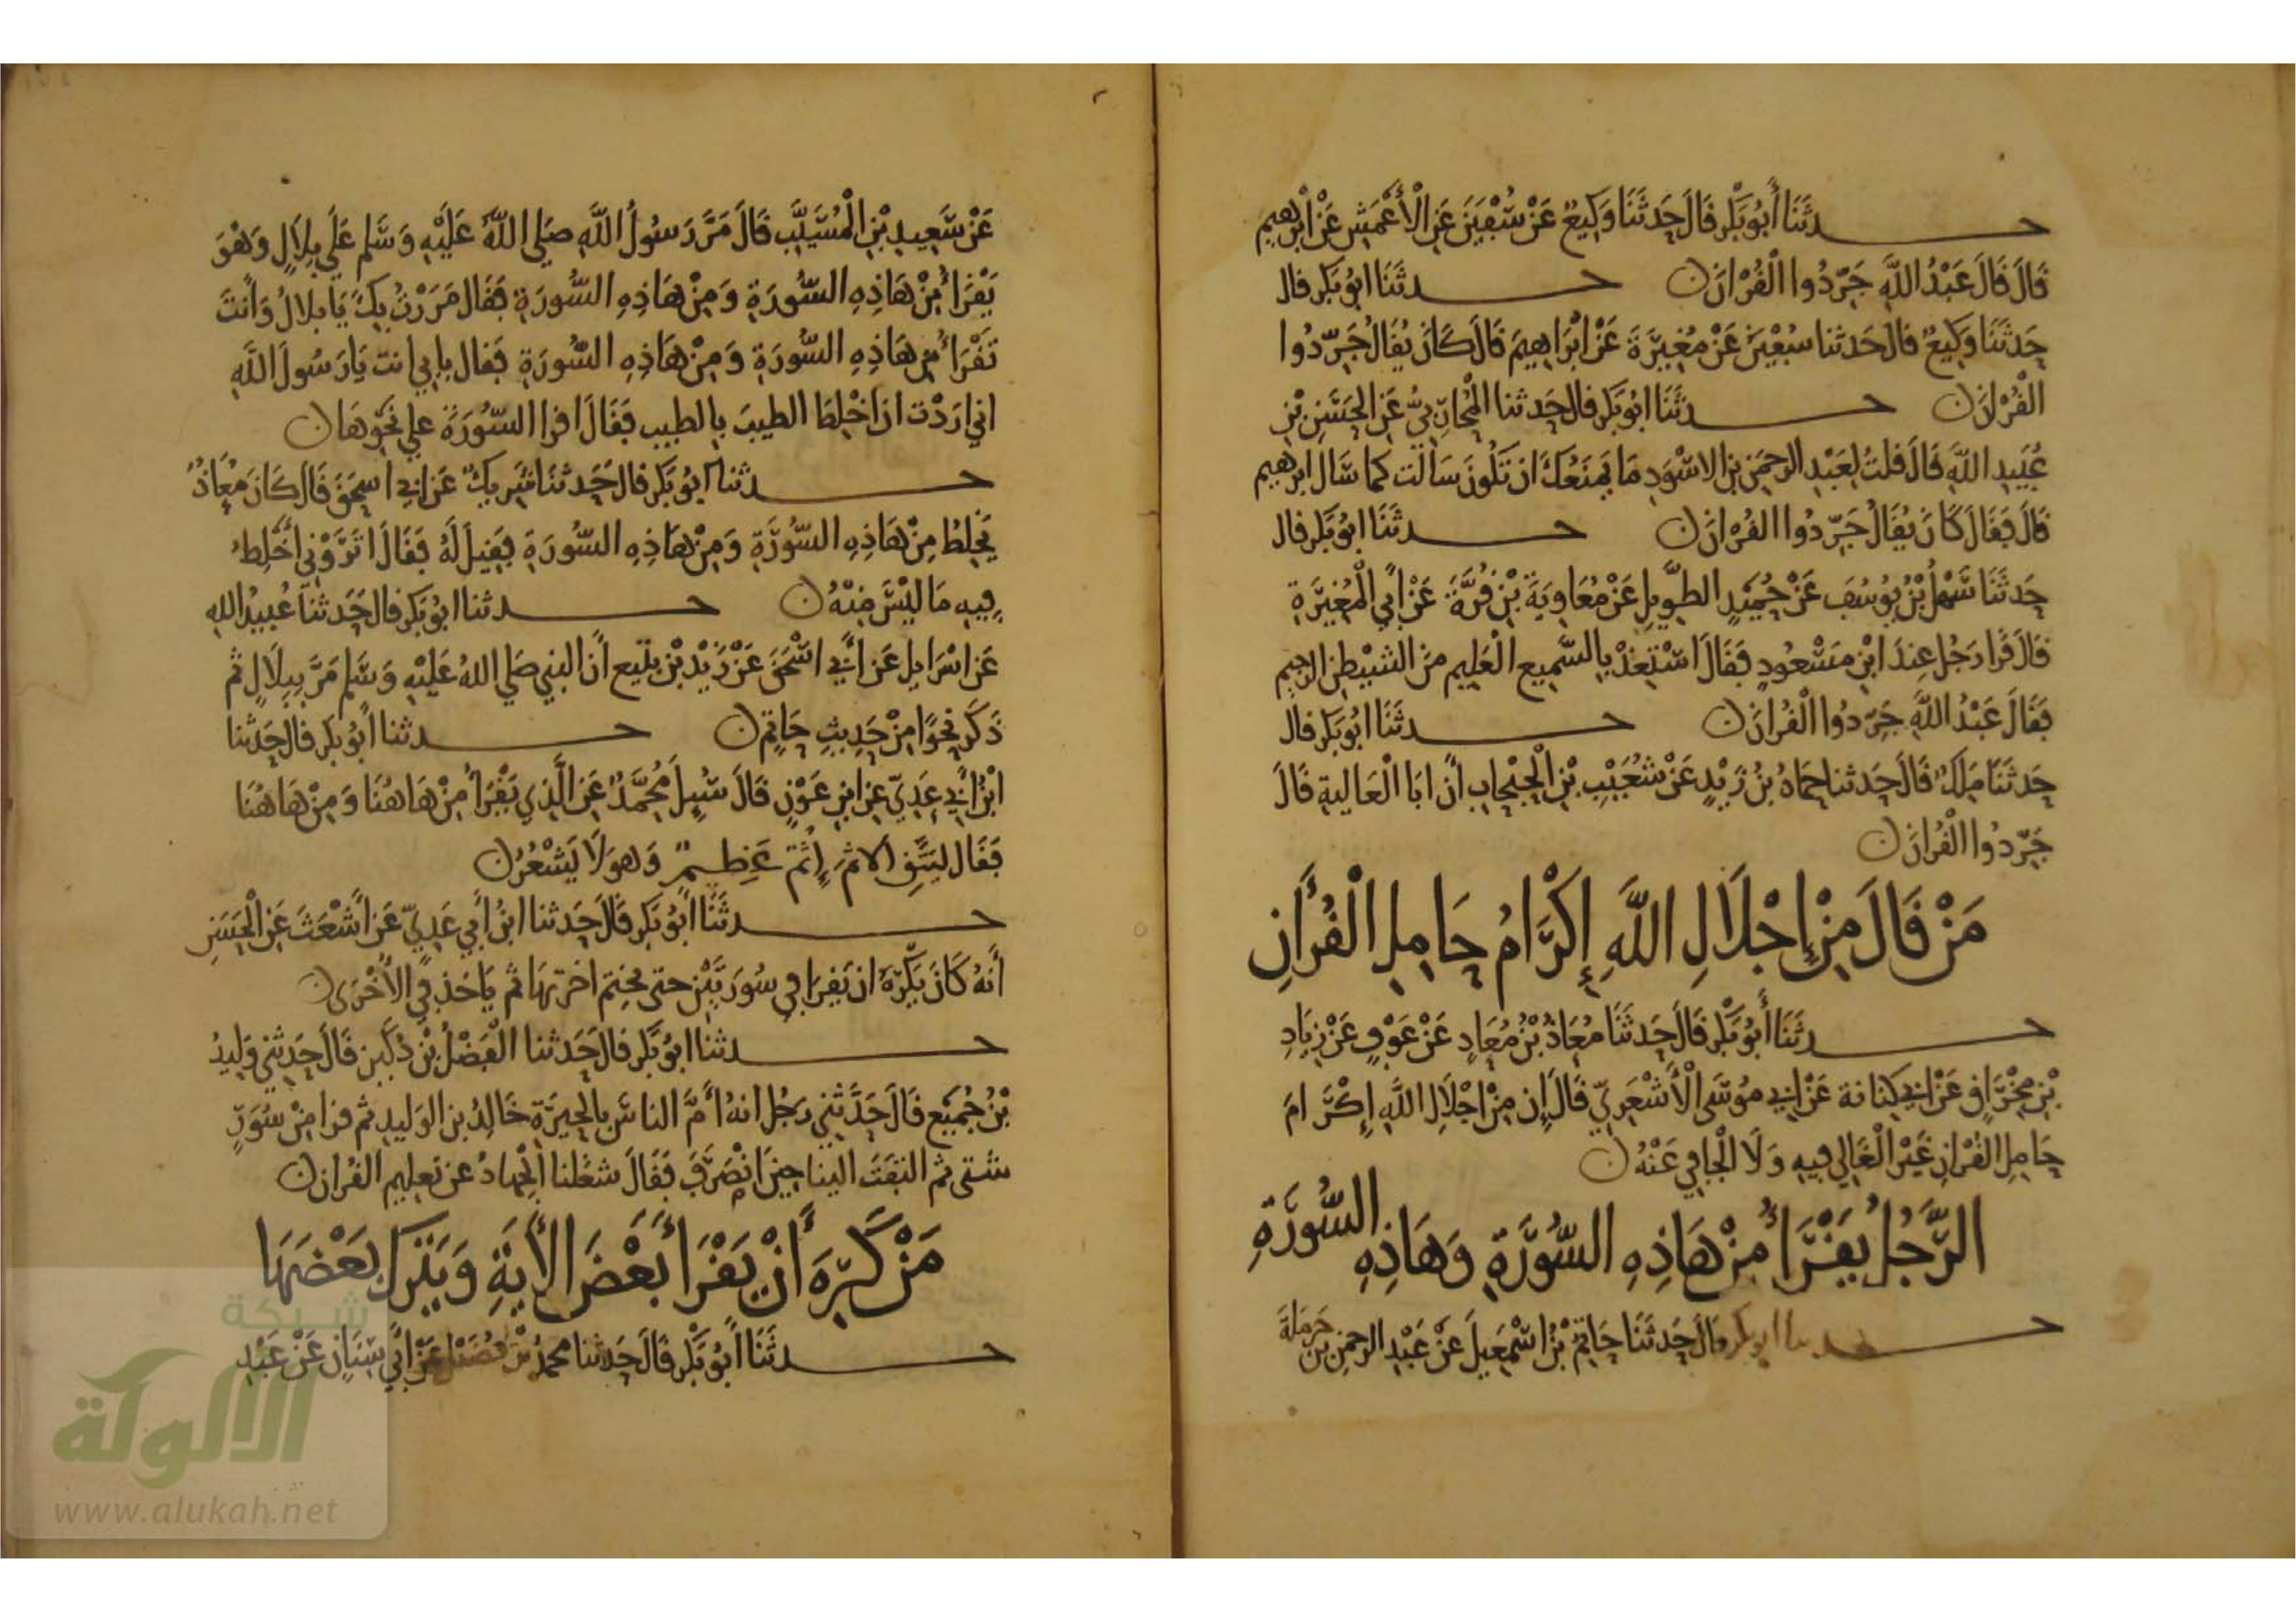 حدثنا أبو بكر قال حدثنا وكيع عن سفين عن الأعمش عن ابرهيم
قال قال عبد الله جردوا القرآن حدثنا ابو بكر قال
حدثنا وكيع قال حدثنا سفين عن مغيرة عن ابراهيم قال كان يقال جردوا
القرآن حدثنا ابو بكر قال حدثنا المحاربي عن الحسن بن
عبيد الله قال قلت لعبد الرحمن بن الاسود ما يمنعك ان تكون سالت كما سال ابرهيم
قال فقال كان يقال جردوا القرآن حدثنا ابو بكر قال
حدثنا سهل بن يوسف عن حميد الطويل عن معاوية بن قرة عن أبي المغيرة
قال قرا رجل عند ابن مسعود فقال استعذ بالسميع العليم من الشيطن الرجيم
فقال عبد الله جردوا القرآن حدثنا ابو بكر قال
حدثنا ملك قال حدثنا حماد بن زيد عن شعيب بن الحبحاب أن ابا العالية قال
جردوا القرآن
من قال من إجلال الله إكرام حامل القرآن
حدثنا أبو بكر قال حدثنا معاذ بن معاذ عن عوف عن زياد
بن مخراق عن ابي كنانة عن ابي موسى الأشعري قال إن من اجلال الله إكرام
حامل القرآن غير الغالي فيه ولا الجافي عنه
الرجل يقرأ من هاذه السورة وهاذه السورة
حدثنا ابو بكر قال حدثنا حاتم بن اسمعيل عن عبد الرحمن بن حرملة
عن سعيد بن المسيب قال مر رسول الله صلى الله عليه وسلم على بلال وهو
يقرأ من هاذه السورة ومن هاذه السورة فقال مررت بك يا بلال وأنت
تقرأ من هاذه السورة ومن هاذه السورة فقال بابي انت يا رسول الله
اني اردت ان اخلط الطيب بالطيب فقال اقرا السورة على نحوها
حدثنا ابو بكر قال حدثنا شريك عن ابي اسحق قال كان معاذ
يخلط من هاذه السورة ومن هاذه السورة فقيل له فقال اتروني أخلط
فيه ما ليس منه حدثنا ابو بكر قال حدثنا عبيد الله
عن اسرايل عن أبي اسحق عن زيد بن يثيع أن النبي صلى الله عليه وسلم مر ببلال ثم
ذكر نحوا من حديث حاتم حدثنا أبو بكر قال حدثنا
ابن أبي عدي عن ابن عون قال سيل محمد عن الذي يقرأ من هاهنا ومن هاهنا
فقال ليتق لا اثم إثم عظيم وهو لا يشعر
حدثنا أبو بكر قال حدثنا ابن أبي عدي عن أشعث عن الحسن
أنه كان يكره ان يقرا في سورتين حتى يختم اخرتها ثم ياخذ في الأخرى
حدثنا ابو بكر قال حدثنا الفضل بن دكين قال حدثني وليد
بن جميع قال حدثني رجل انه أم الناس بالحيرة خالد بن الوليد ثم قرا من سور
شتى ثم التفت الينا حين انصرف فقال شغلنا الجهاد عن تعليم القرآن
من كره أن يقرأ بعض الأية ويترك بعضها
حدثنا أبو بكر قال حدثنا محمد بن فضيل عن أبي سنان عن عبد
شبكة
الألوكة
www.alukah.net